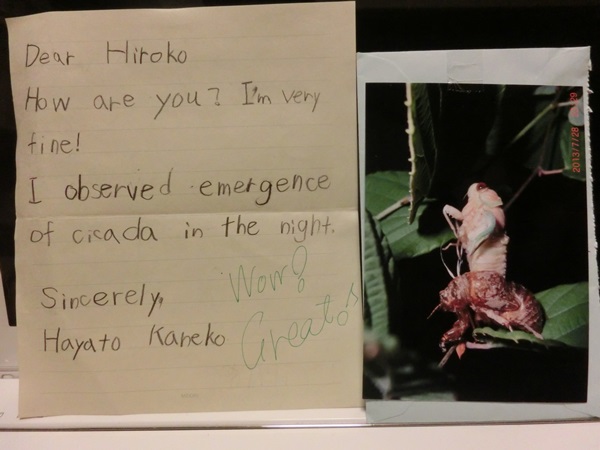 Dear Hiroko
How are you? I'm very
fine!
I observed emergence
of cicada in the night.
Sincerely,
Hayato Kaneko
Wow!
Great!